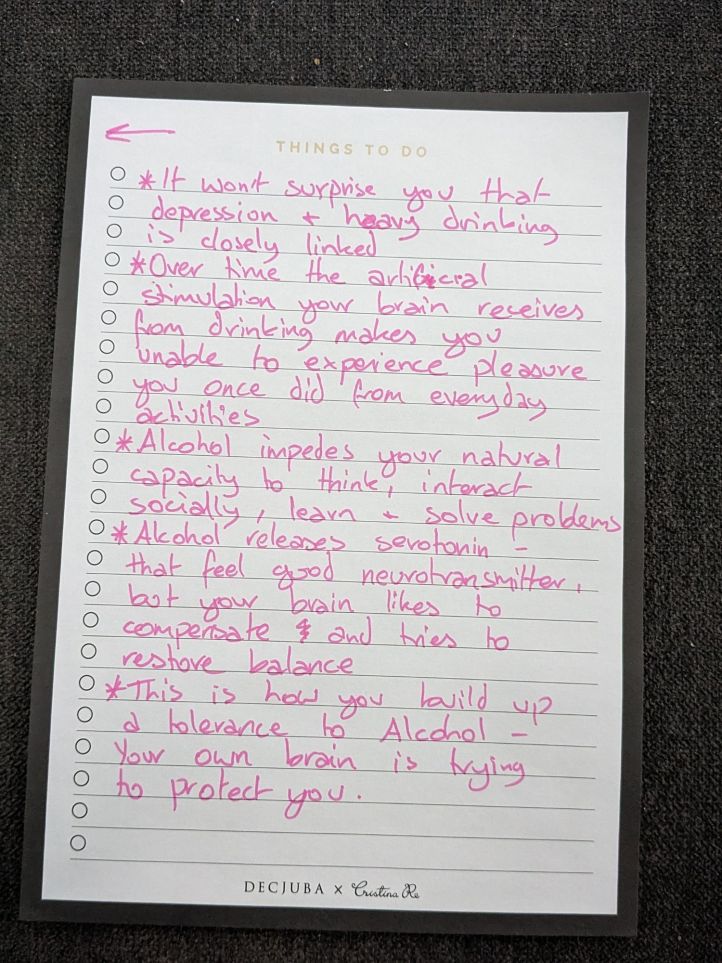 THINGS TO DO
* It won't surprise you that
depression + heavy drinking
is closely linked
* Over time the artificial
stimulation your brain receives
from drinking makes you
unable to experience pleasure
you once did from everyday
activities
* Alcohol impedes your natural
capacity to think, interact
socially, learn + solve problems
* Alcohol releases serotonin -
that feel good neurotransmitter,
but your brain likes to
compensate and tries to
restore balance
* This is how you build up
a tolerance to Alcohol -
Your own brain is trying
to protect you.
DECJUBA x Cristina Re